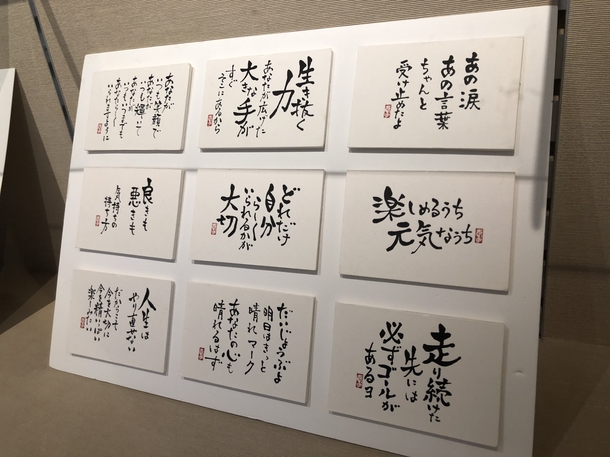 あなたが
いつも笑顔で
いつも輝いて
あなたが
いつまでも
あなたらしく
いられますように
生き抜く
力
あなたが広げた
大きな手が
すぐ
そこにあるから
あの涙
あの言葉
ちゃんと
受け止めたよ
良きも
悪きも
気持ちの
持ち方
どれだけ
自分
らしく
いられるかが
大切
楽しめるうち
元気なうち
人生は
やり直せない
だからこそ
今を大切に
今を精いっぱい
楽しみたい
だいじょうぶよ
明日はきっと
晴れマーク
あなたの心も
晴れるはず
走り続けた
先には
必ずゴールが
あるヨ